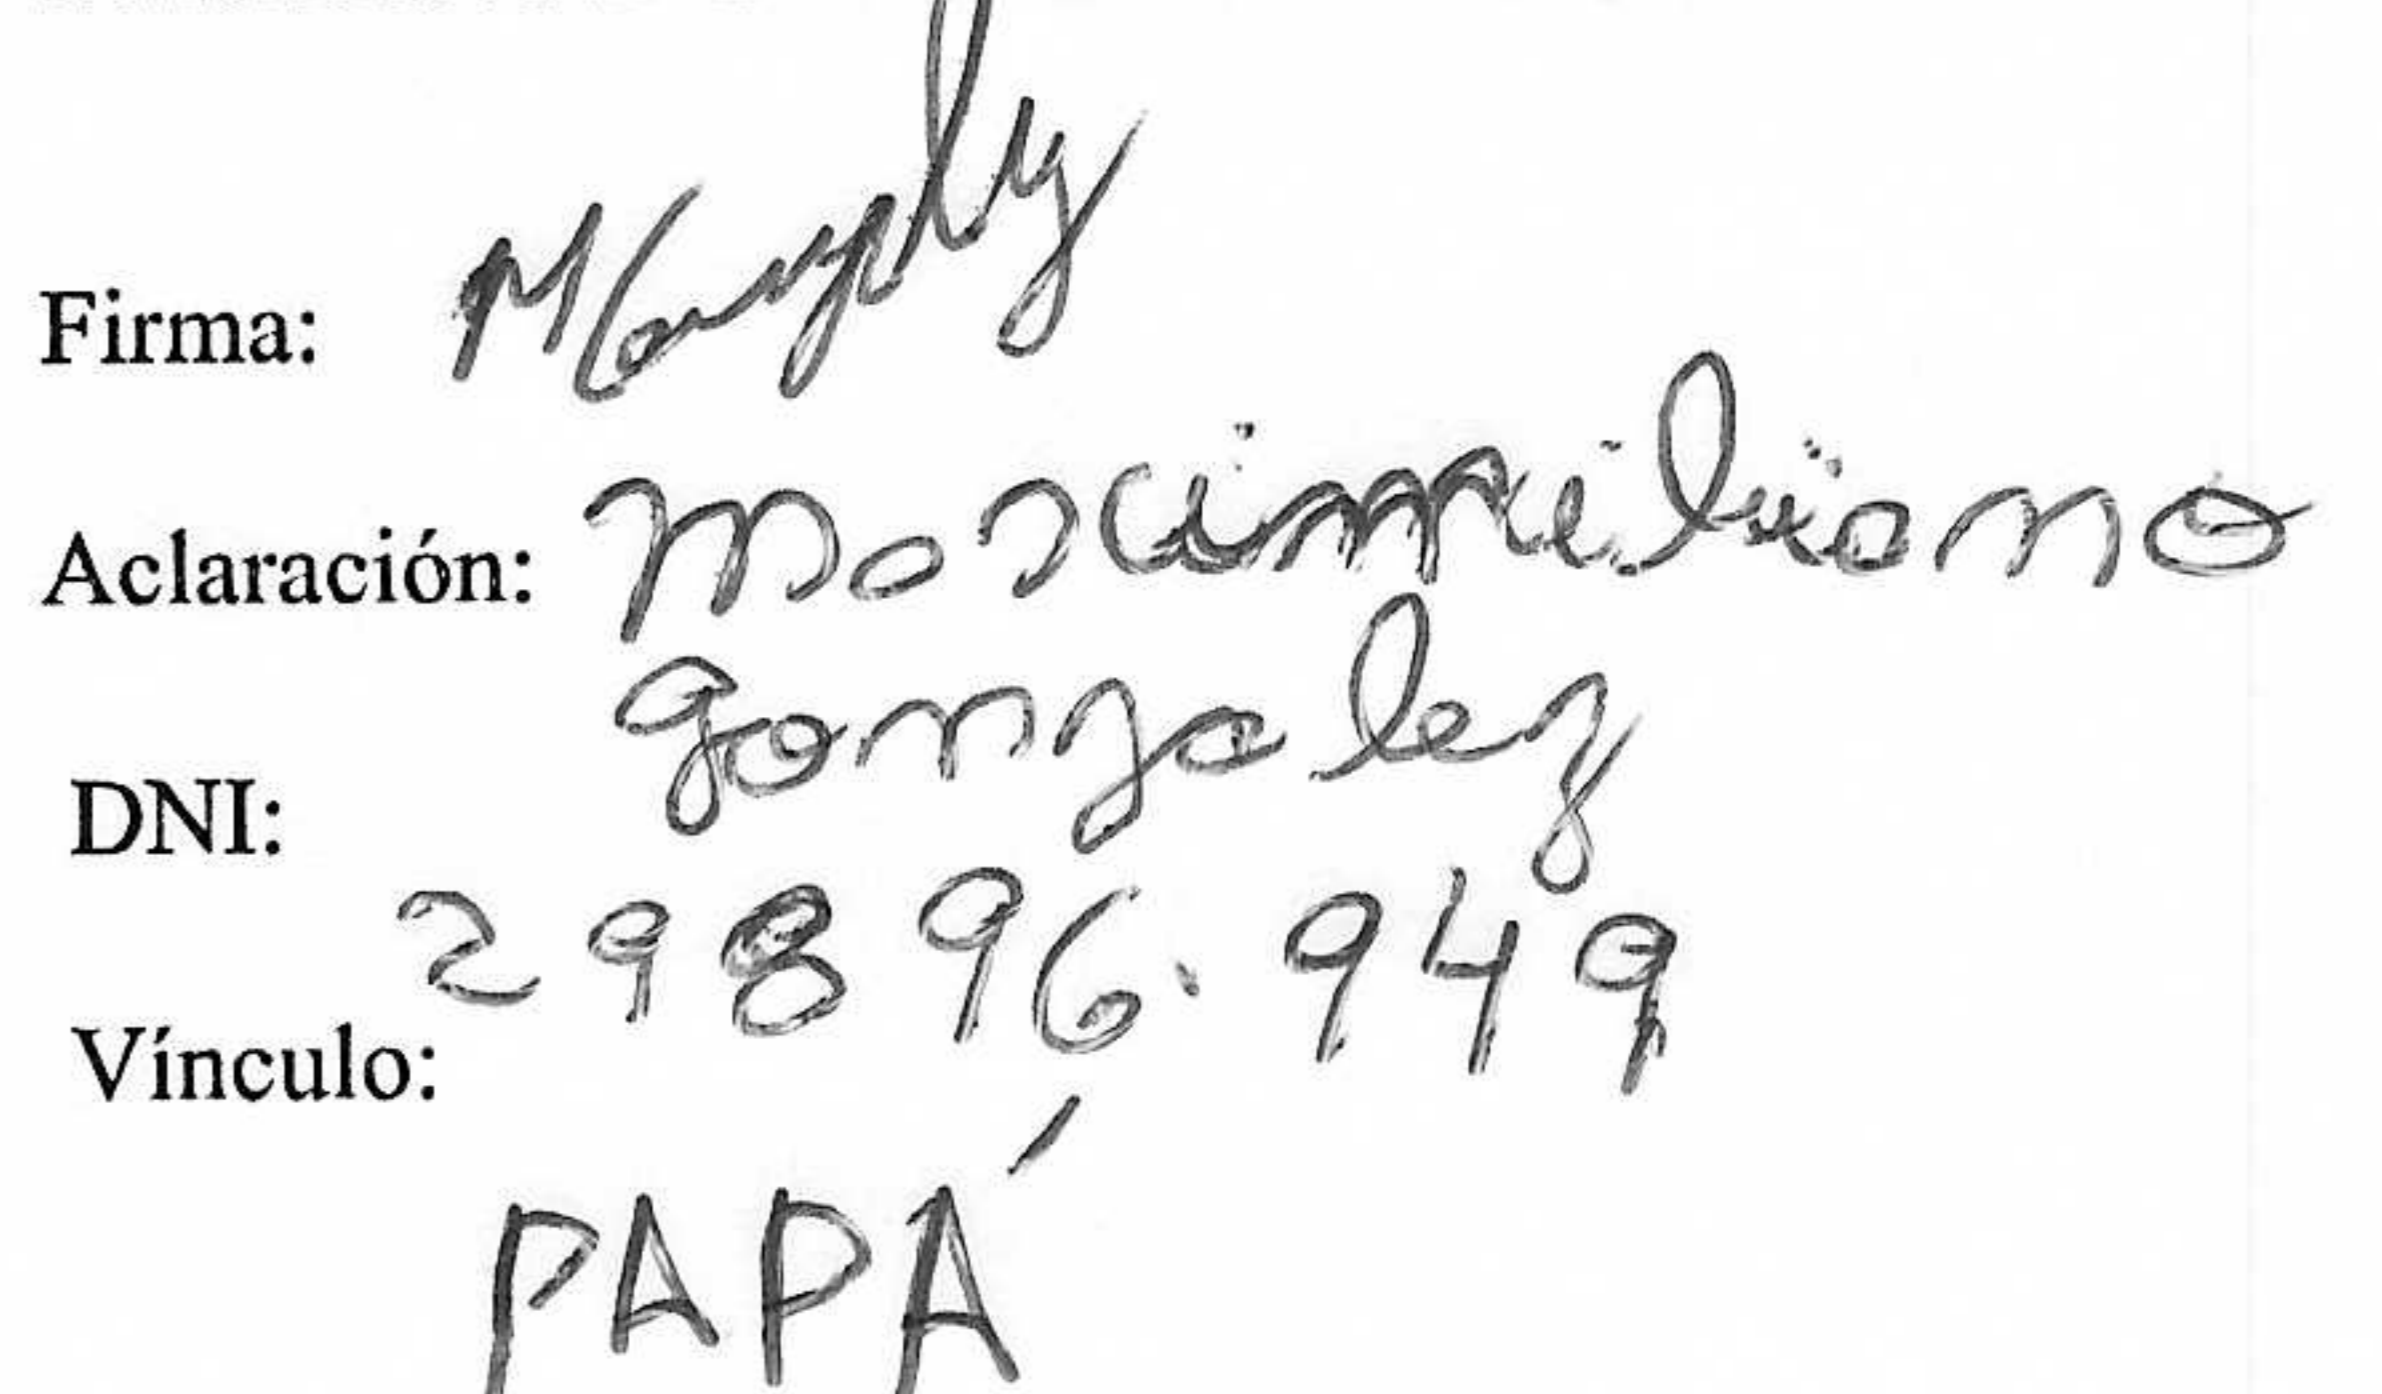 Firma:
Aclaración: Maximiliano
Gonzalez
DNI:
29896.949
Vínculo:
PAPÁ